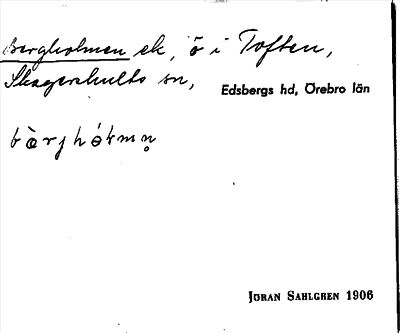 Bergholmen ek, ö i Toften,
Skagershults sn,
Edsbergs hd, Örebro län
bærjhólmn̥
JÖRAN SAHLGREN 1906